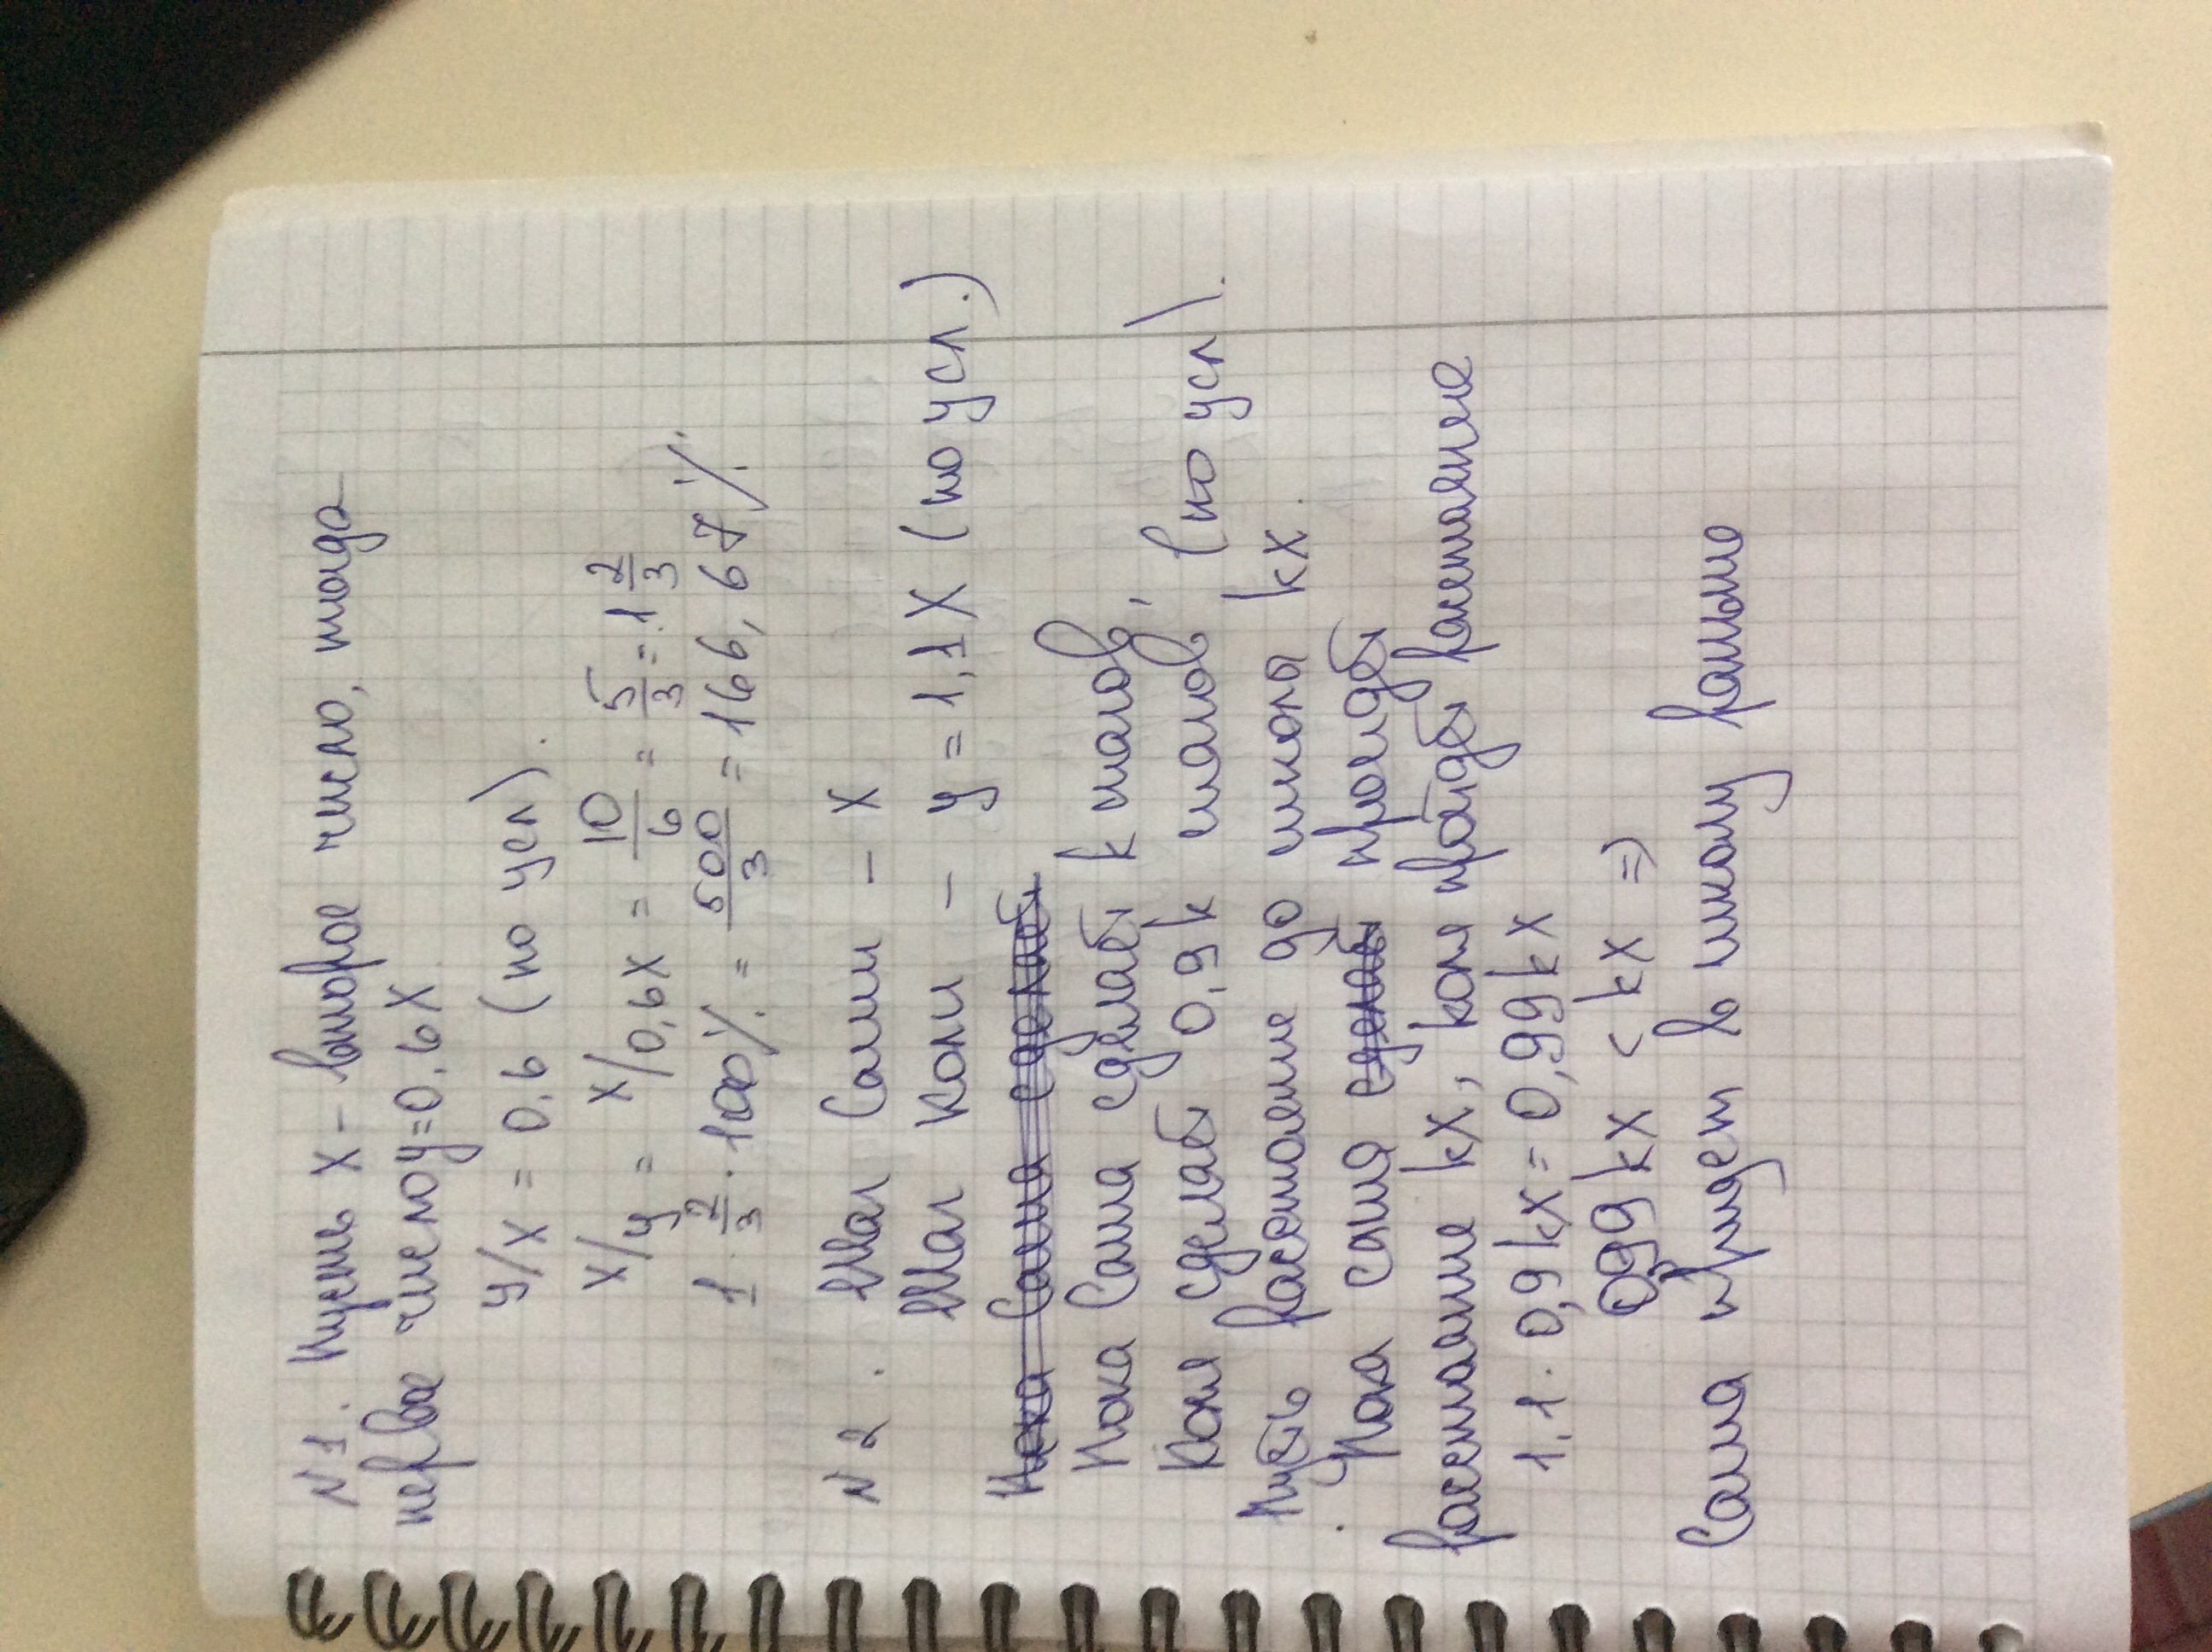 N 1. Пусть x - второе число, тогда
первое число y=0,6x
y/x = 0,6 (по усл).
x/y = x/0,6x = 10/6 = 5/3 = 1 2/3
1 2/3 · 100% = 500/3 = 166,67%.
N 2. Шаг Саши - x
Шаг Коли - y = 1,1x (по усл.)
Пока Саша сделает
Пока Саша сделает k шагов,
Коля сделает 0,9k шагов, (по усл).
Пусть расстояние до школы kx.
Пока Саша сделает пройдет
расстояние kx, Коля пройдет расстояние
1,1 · 0,9kx = 0,99kx
0,99kx < kx =>
Саша придет в школу раньше